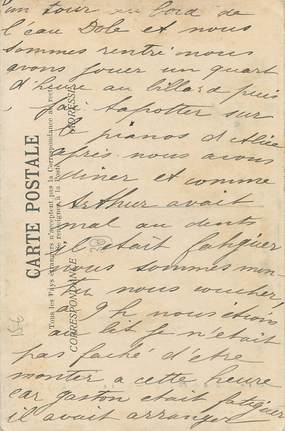 un tour au bord de
l'eau Dole et nous
sommes rentré nous
avons jouer un quart
d'heure au billard puis
j'ai tapotter sur
le pianos d'Alice
après nous avons
diner et comme
Arthur avait
mal au dents
il était fatiguer
nous sommes mon-
ter nous coucher,
a 9h nous étions
au lit je n'était
pas faché d'etre
monter a cette heure
car gaston était fatiguer
il avait arranger
CARTE POSTALE
Tous les Pays étrangers n'acceptent pas la Correspondance au recto
se renseigner à la Poste
CORRESPONDANCE
ADRESSE